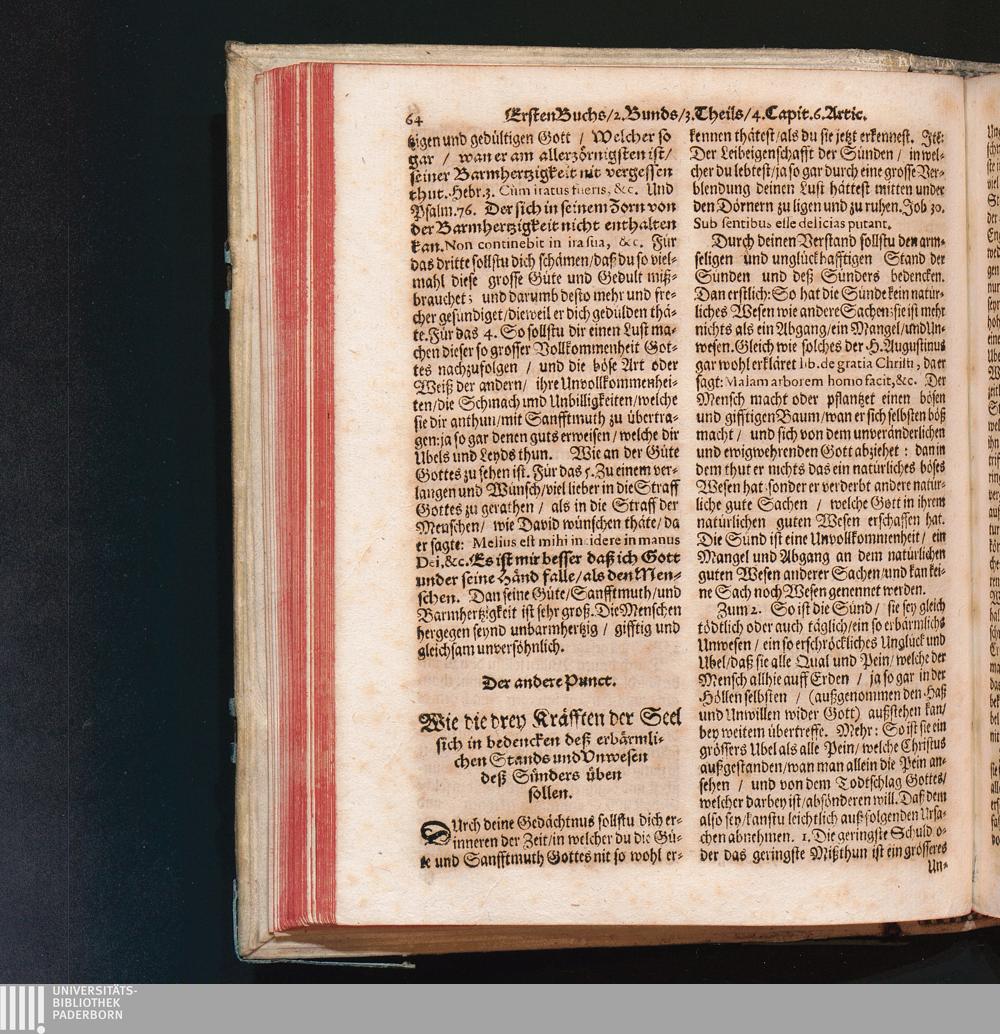 64
Ersten Buchs/2. Bunds/3. Theils/4. Capit. 6. Artic.
tzigen und gedültigen Gott / Welcher so
gar / wan er am allerzörnigsten ist/
seiner Barmhertzigkeit nit vergessen
thut. Hebr. 3. Cùm iratus fueris, &c. Und
Psalm. 76. Der sich in seinem Zorn von
der Barmhertzigkeit nicht enthalten
kan. Non continebit in ira sua, &c. Für
das dritte sollstu dich schämen/daß du so viel-
mahl diese grosse Güte und Gedult miß-
brauchet; und darumb desto mehr und fre-
cher gesündiget/dieweil er dich gedulden thä-
te. Für das 4. So sollstu dir einen Lust ma-
chen dieser so grosser Vollkommenheit Got-
tes nachzufolgen / und die böse Art oder
Weiß der andern/ ihre Unvollkommenhei-
ten/die Schmach und Unbilligkeiten/welche
sie dir anthun/mit Sanfftmuth zu übertra-
gen: ja so gar denen guts erweisen/ welche dir
Ubels und Leyds thun. Wie an der Güte
Gottes zu sehen ist. Für das 5. Zu einem ver-
langen und Wünsch/viel lieber in die Straff
Gottes zu gerathen / als in die Straff der
Menschen/ wie David wünschen thäte/ da
er sagte: Melius est mihi incidere in manus
Dei, &c. Es ist mir besser daß ich Gott
under seine Händ falle/als den Men-
schen. Dan seine Güte/Sanfftmuth/und
Barmhertzigkeit ist sehr groß. Die Menschen
hergegen seynd unbarmhertzig / gifftig und
gleichsam unversöhnlich.
Der andere Punct.
Wie die drey Kräfften der Seel
sich in bedencken deß erbärmli-
chen Stands und Unwesen
deß Sünders üben
sollen.
DUrch deine Gedächtnus sollstu dich er-
inneren der Zeit/in welcher du die Gü-
te und Sanfftmuth Gottes nit so wohl er-
kennen thätest/als du sie jetzt erkennest. Itē:
Der Leibeigenschafft der Sünden / in wel-
cher du lebtest/ja so gar durch eine grosse Ver-
blendung deinen Lust hättest mitten under
den Dörnern zu ligen und zu ruhen. Job 30.
Sub sentibus esse delicias putant.
Durch deinen Verstand sollstu den arm-
seligen und unglückhafftigen Stand der
Sünden und deß Sünders bedencken.
Dan erstlich: So hat die Sünde kein natür-
liches Wesen wie andere Sachen: sie ist mehr
nichts als ein Abgang/ein Mangel/und Un-
wesen. Gleich wie solches der H. Augustinus
gar wohl erkläret lib. de gratia Christi, da er
sagt: Malam arborem homo facit, &c. Der
Mensch macht oder pflantzet einen bösen
und gifftigen Baum/wan er sich selbsten böß
macht / und sich von dem unveränderlichen
und ewigwehrenden Gott abziehet : dan in
dem thut er nichts das ein natürliches böses
Wesen hat: sonder er verderbt andere natür-
liche gute Sachen / welche Gott in ihrem
natürlichen guten Wesen erschaffen hat.
Die Sünd ist eine Unvollkommenheit / ein
Mangel und Abgang an dem natürlichen
guten Wesen anderer Sachen/und kan kei-
ne Sach noch Wesen genennet werden.
Zum 2. So ist die Sünd / sie sey gleich
tödtlich oder auch täglich/ein so erbärmlichs
Unwesen / ein so erschröckliches Unglück und
Ubel/daß sie alle Qual und Pein/ welche der
Mensch allhie auff Erden / ja so gar in der
Höllen selbsten / (außgenommen den Haß
und Unwillen wider Gott) außstehen kan/
bey weitem übertreffe. Mehr: So ist sie ein
grössers Ubel als alle Pein/ welche Christus
außgestanden/wan man allein die Pein an-
sehen / und von dem Todtschlag Gottes/
welcher darbey ist/absönderen will. Daß dem
also sey/kanstu leichtlich auß folgenden Ursa-
chen abnehmen. 1. Die geringste Schuld o-
der das geringste Mißthun ist ein grösseres
Un-
UNIVERSITÄTS-
BIBLIOTHEK
PADERBORN